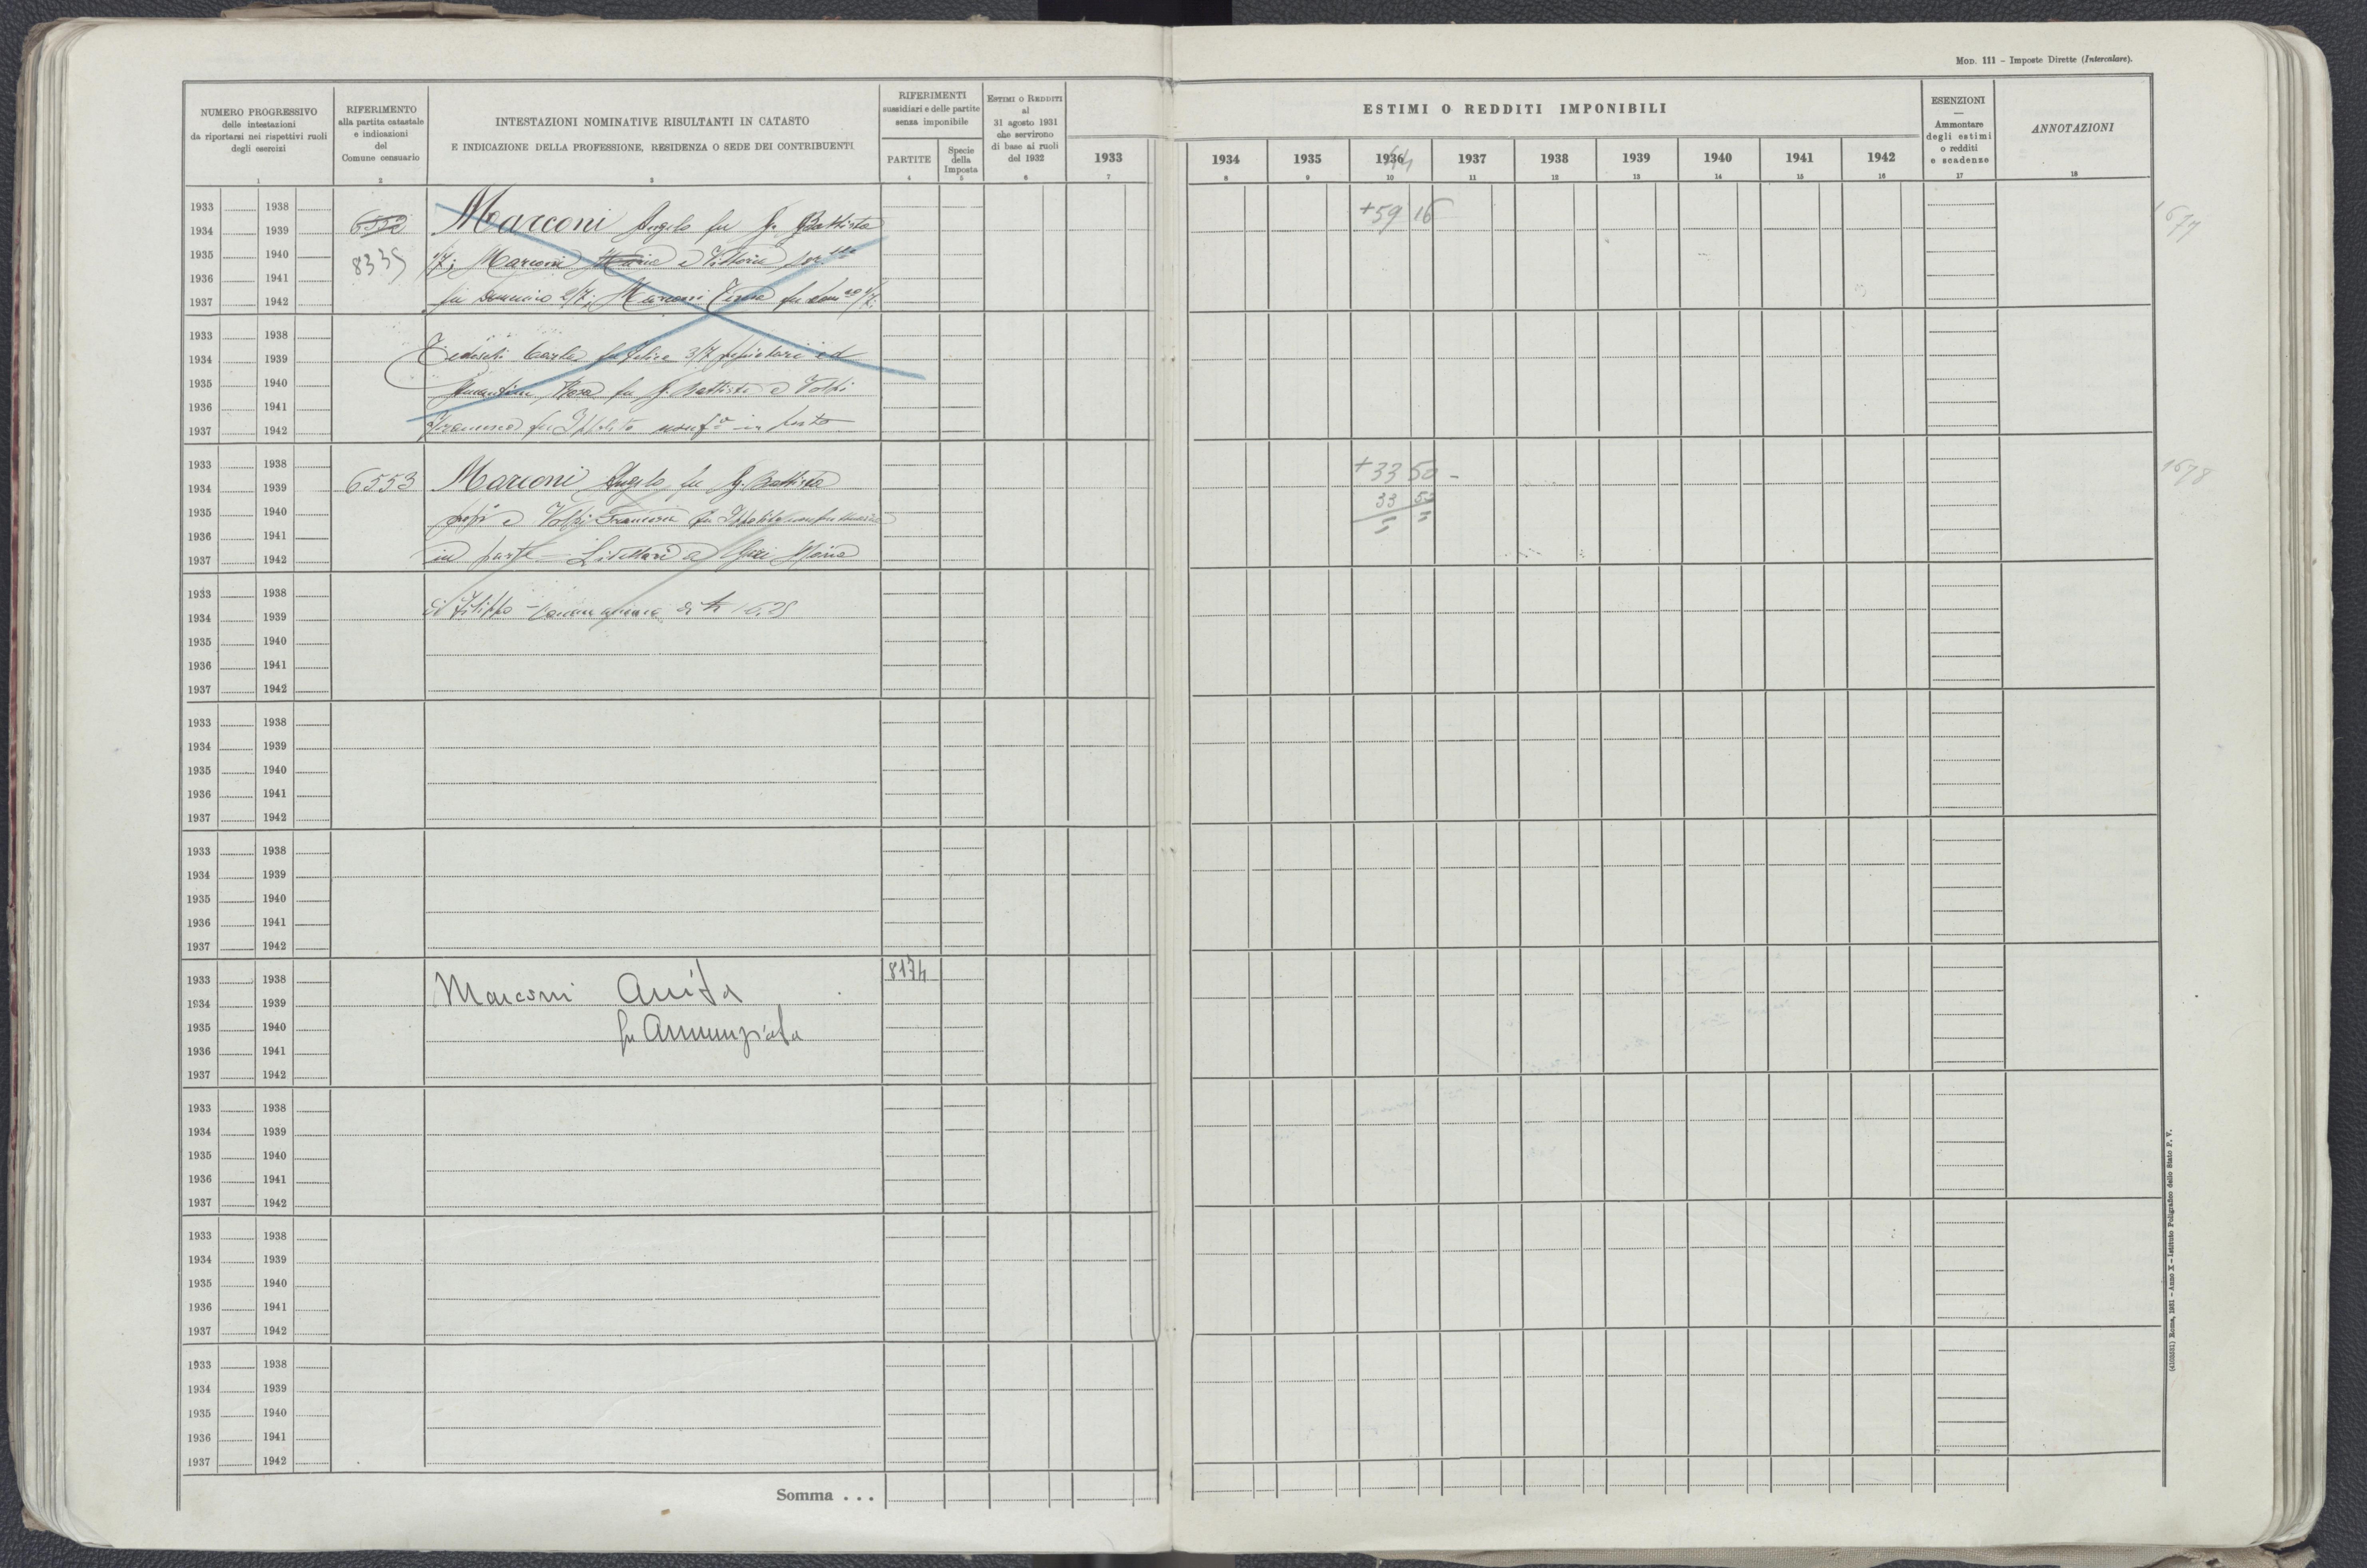 MOD. 111 – Imposte Dirette (Intercalare).
NUMERO PROGRESSIVO
delle intestazioni
da riportarsi nei rispettivi ruoli
degli esercizi
1
RIFERIMENTO
alla partita catastale
e indicazioni
del
Comune censuario
2
INTESTAZIONI NOMINATIVE RISULTANTI IN CATASTO
E INDICAZIONE DELLA PROFESSIONE, RESIDENZA O SEDE DEI CONTRIBUENTI
3
RIFERIMENTI
sussidiari e delle partite
senza imponibile
PARTITE
4
Specie
della
Imposta
5
ESTIMI O REDDITI
al
31 agosto 1931
che servirono
di base ai ruoli
del 1932
6
ESTIMI O REDDITI IMPONIBILI
1933 1934 1935 1936 1937 1938 1939 1940 1941 1942
7 8 9 10 11 12 13 14 15 16
44
ESENZIONI
—
Ammontare
degli estimi
o redditi
e scadenze
17
ANNOTAZIONI
18
1933 1938
1934 1939 6552 Marconi Angelo fu G. Battista +59 16 1677
1935 1940 8335 1/7; Marconi Maria e Vittoria
1936 1941
1937 1942 fu 2/7; Marconi Teresa fu 1/7;
1933 1938
1934 1939 Tedeschi Carlo fu Felice 3/7 ed
1935 1940 Rosa fu G. Battista e Volpi
1936 1941
1937 1942 Francesca fu Ippolito in parte
1933 1938 +33 50 - 1678
1934 1939 6553 Marconi Angelo fu G. Battista 33 50
1935 1940 e Volpi Francesca fu Ippolito = =
1936 1941
1937 1942 in parte – Livellari a Maria
1933 1938
1934 1939 di Filippo – di
1935 1940
1936 1941
1937 1942
1933 1938
1934 1939
1935 1940
1936 1941
1937 1942
1933 1938
1934 1939
1935 1940
1936 1941
1937 1942
1933 1938 8174
1934 1939 Marconi Anita
1935 1940 fu Annunziata
1936 1941
1937 1942
1933 1938
1934 1939
1935 1940
1936 1941
1937 1942
1933 1938
1934 1939
1935 1940
1936 1941
1937 1942
1933 1938
1934 1939
1935 1940
1936 1941
1937 1942
Somma . . .
(4103531) Roma, 1931 – Anno X – Istituto Poligrafico dello Stato P. V.